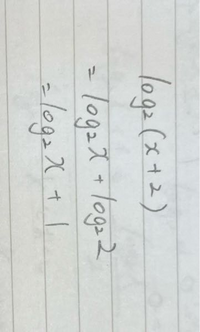 log₂(x+2)
=log₂x+log₂2
=log₂x+1